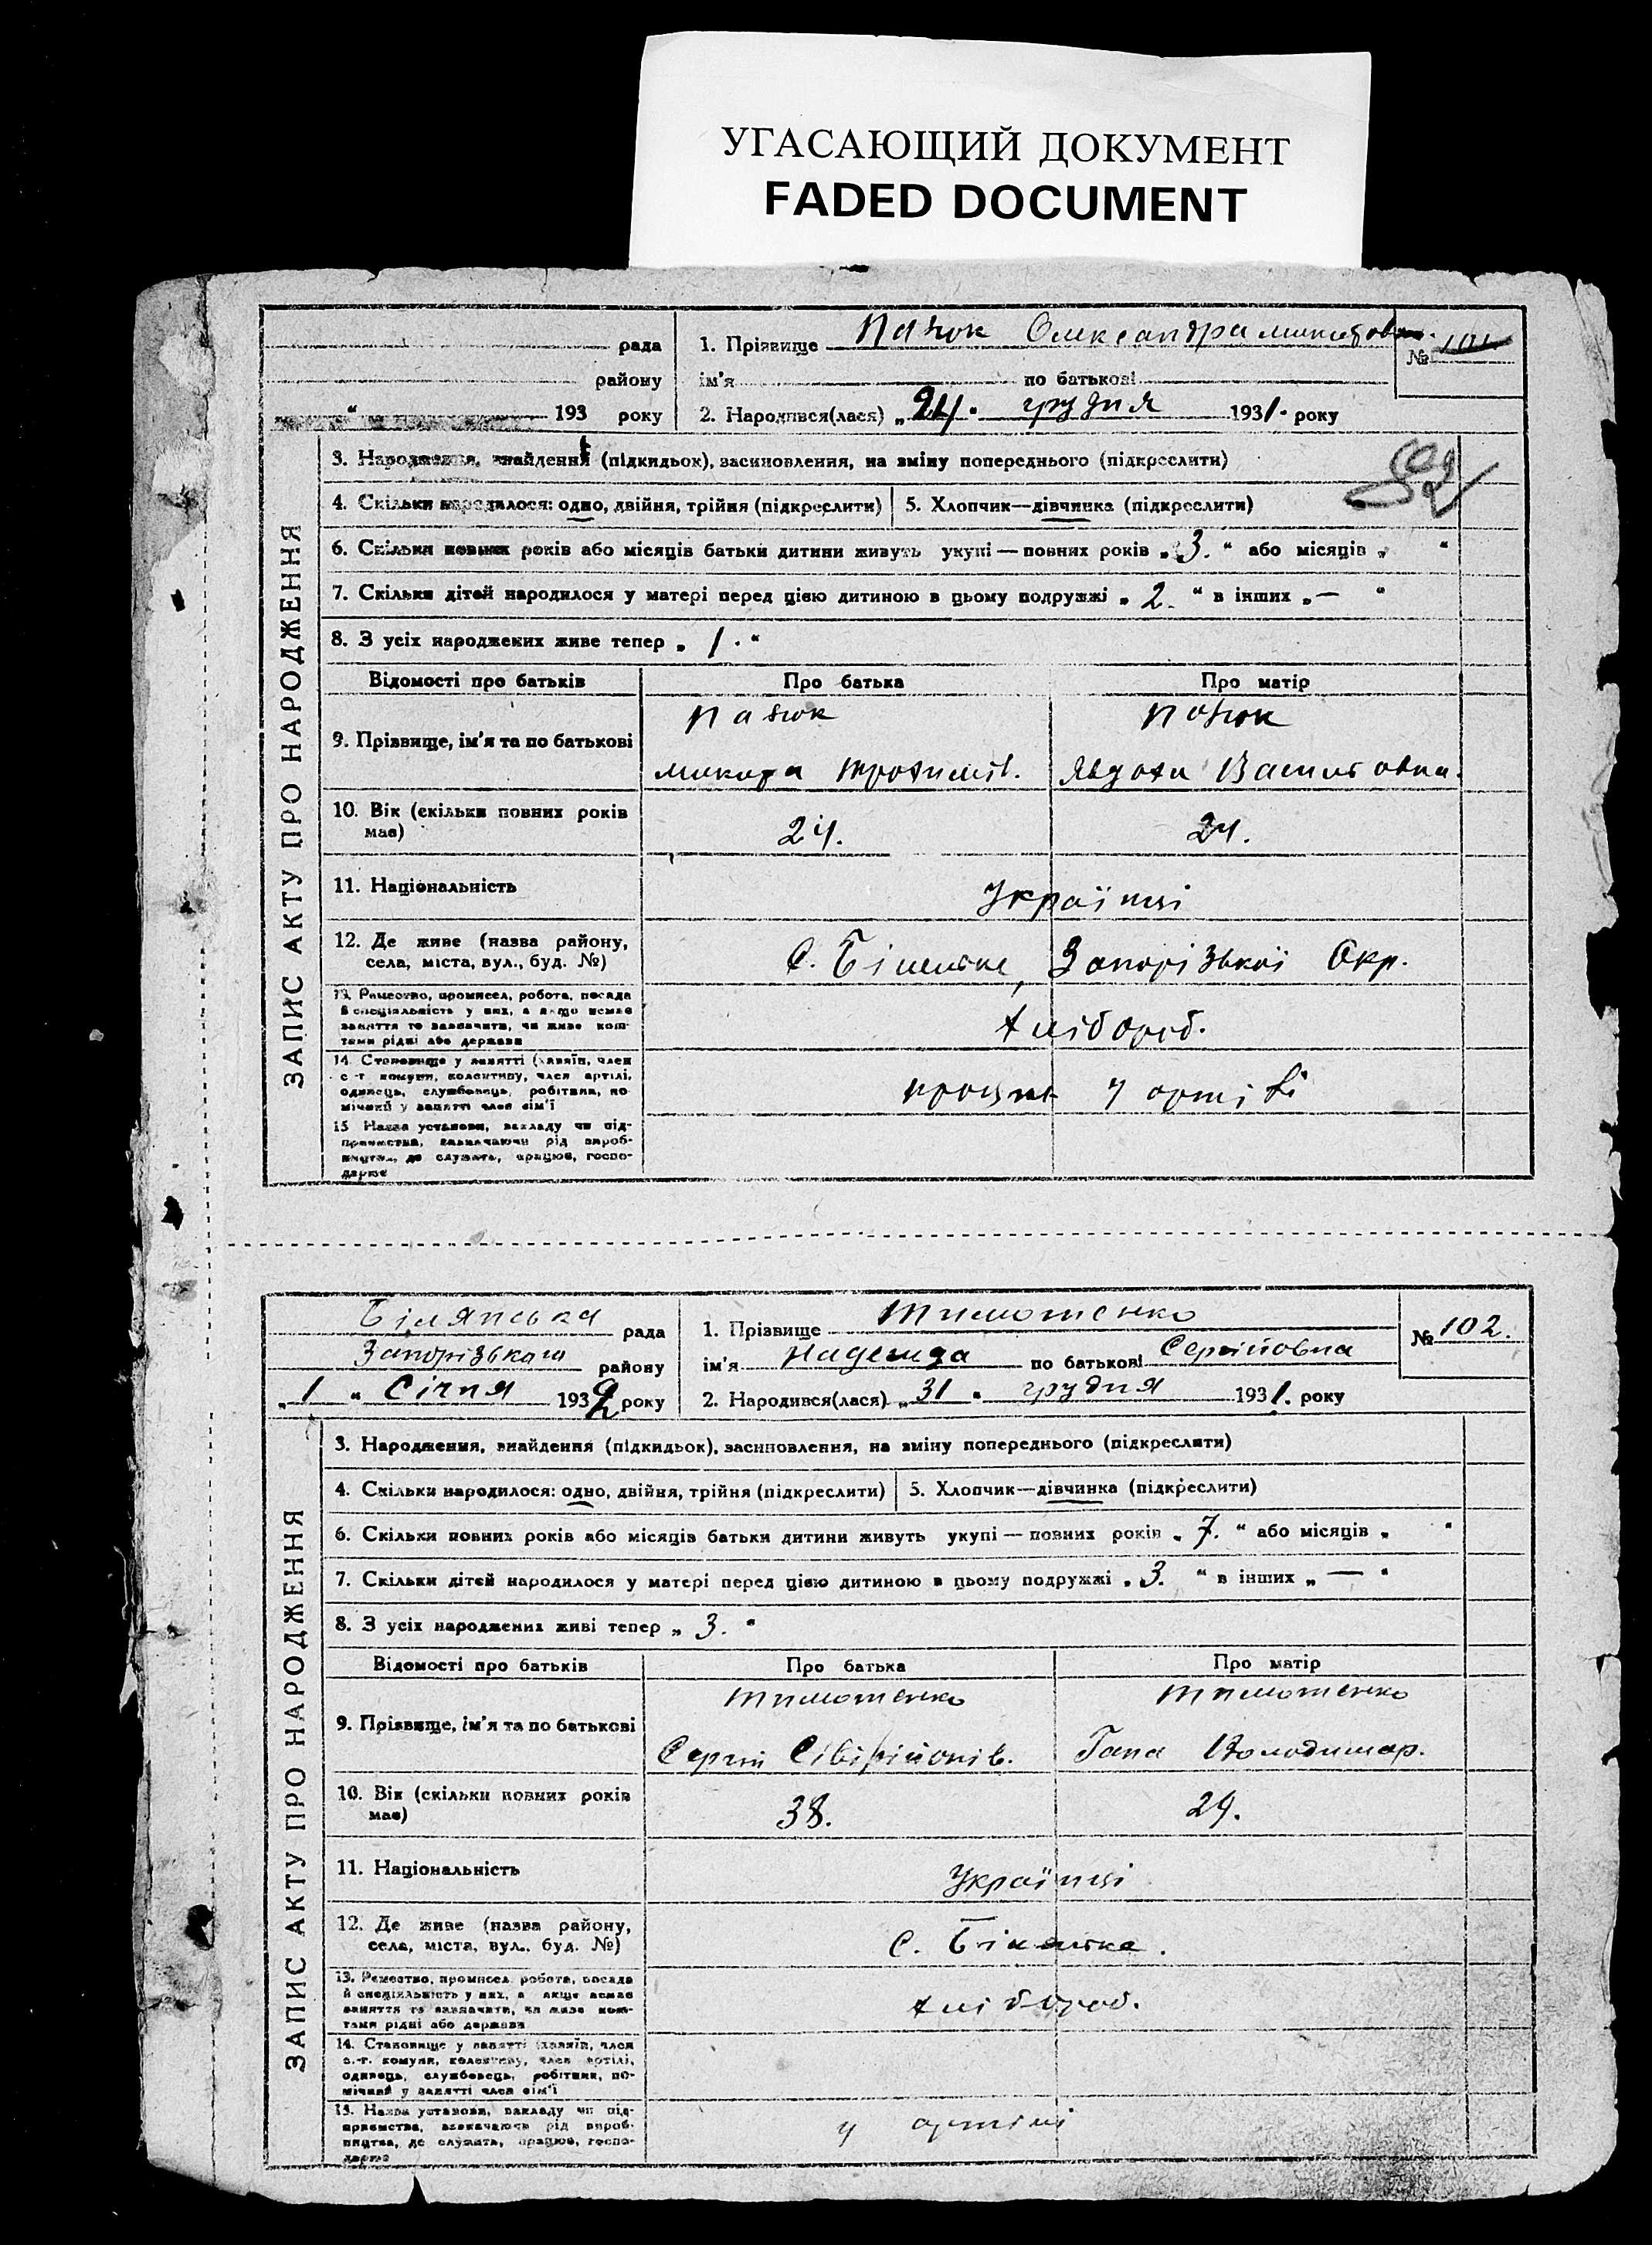 УГАСАЮЩИЙ ДОКУМЕНТ
FADED DOCUMENT
рада
району
193 року
1. Прізвище Олександра
№ 101.
ім'я по батькові
2. Народився(лася) „24" грудня 1931. року
ЗАПИС АКТУ ПРО НАРОДЖЕННЯ
3. Народження, знайдення (підкидьок), засиновлення, на зміну попереднього (підкреслити)
4. Скільки народилося: одно, двійня, трійня (підкреслити)
5. Хлопчик—дівчинка (підкреслити)
52
6. Скільки повних років або місяців батьки дитини живуть укупі — повних років „3." або місяців „ "
7. Скільки дітей народилося у матері перед цією дитиною в цьому подружжі „2." в інших „—"
8. З усіх народжених живе тепер „1."
Відомості про батьків
Про батька
Про матір
9. Прізвище, ім'я та по батькові
Микита
10. Вік (скільки повних років має)
24.
24.
11. Національність
Українці
12. Де живе (назва району, села, міста, вул., буд. №)
С. Біленьке, Запорізької Окр.
13. Ремество, промисел, робота, посада й спеціяльність у них, а якщо немає заняття то зазначити, чи живе коштами рідні або держави
хлібороб.
14. Становище у занятті (хазяїн, член с.-г. комуни, колективу, член артілі, одинець, службовець, робітник, помічний у занятті член сім'ї
у артілі
15. Назва установи, закладу чи підприємства, зазначаючи рід виробництва, де служить, працює, господарює
Білянська рада
Запорізького району
„1" Січня 1932 року
1. Прізвище Тимошенко
№ 102.
ім'я Надежда по батькові Сергійовна
2. Народився(лася) „31" грудня 1931. року
ЗАПИС АКТУ ПРО НАРОДЖЕННЯ
3. Народження, знайдення (підкидьок), засиновлення, на зміну попереднього (підкреслити)
4. Скільки народилося: одно, двійня, трійня (підкреслити)
5. Хлопчик—дівчинка (підкреслити)
6. Скільки повних років або місяців батьки дитини живуть укупі — повних років „7." або місяців „ "
7. Скільки дітей народилося у матері перед цією дитиною в цьому подружжі „3." в інших „—"
8. З усіх народжених живі тепер „3."
Відомості про батьків
Про батька
Про матір
9. Прізвище, ім'я та по батькові
Тимошенко
Тимошенко
Сергій
Гана Володимар.
10. Вік (скільки повних років має)
38.
29.
11. Національність
Українці
12. Де живе (назва району, села, міста, вул., буд. №)
С. Біленьке.
13. Ремество, промисел, робота, посада й спеціяльність у них, а якщо немає заняття то зазначити, чи живе коштами рідні або держави
хлібороб.
14. Становище у занятті (хазяїн, член с.-г. комуни, колективу, член артілі, одинець, службовець, робітник, помічний у занятті член сім'ї
15. Назва установи, закладу чи підприємства, зазначаючи рід виробництва, де служить, працює, господарює
у артілі